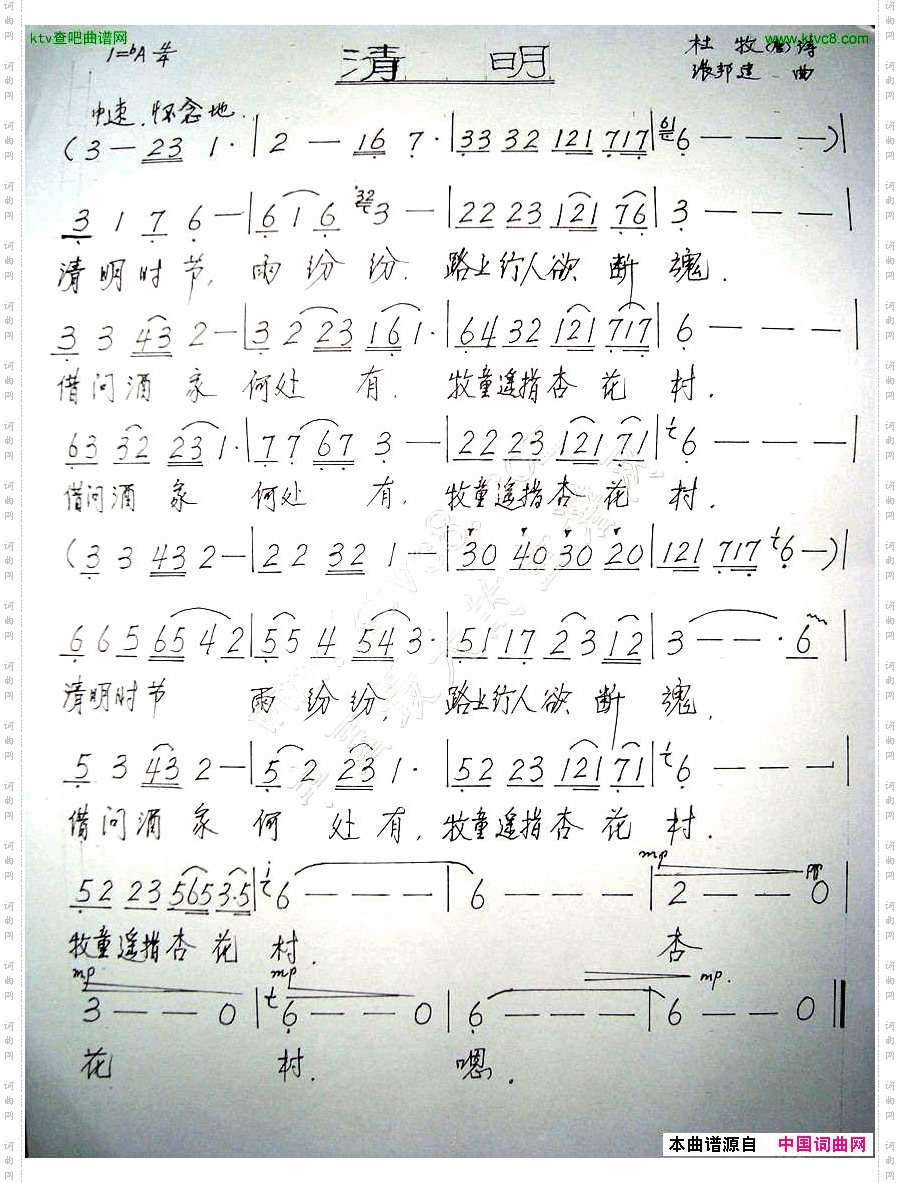 ktv查吧曲谱网
www.ktvc8.com
1=ᵇA 4/4
清 明
杜 牧(唐)诗
张邦建 曲
中速.怀念地.
(3 — 23 1· | 2 — 16 7· | 33 32 121 717 | 6 — — —) |
3 1 7 6 — | 6 1 6 3 — | 22 23 121 76 | 3 — — — |
清明时节, 雨纷纷. 路上行人欲断魂.
3 3 43 2 — | 3 2 23 161· | 64 32 121 717 | 6 — — — |
借问酒家何处有. 牧童遥指杏花村.
63 32 23 1· | 7 7 67 3 — | 22 23 121 71 | 6 — — — |
借问酒家何处有, 牧童遥指杏花村.
(3 3 43 2 — | 2 2 32 1 — | 30 40 30 20 | 121 717 6 —) |
6 65 65 42 | 55 4 54 3· | 51 17 23 12 | 3 — — · 6 |
清明时节 雨纷纷, 路上行人欲断魂,
5 3 43 2 — | 5 2 23 1· | 52 23 121 71 | 6 — — — |
借问酒家何处有, 牧童遥指杏花村.
mp pp
52 23 565 3·5 | 6 — — — | 6 — — — — | 2 — — 0 |
牧童遥指杏花村. 杏
mp mp mp.
3 — — 0 | 6 — — 0 | 6 — — — | 6 — — 0 ‖
花 村. 嗯.
本曲谱源自 中国词曲网